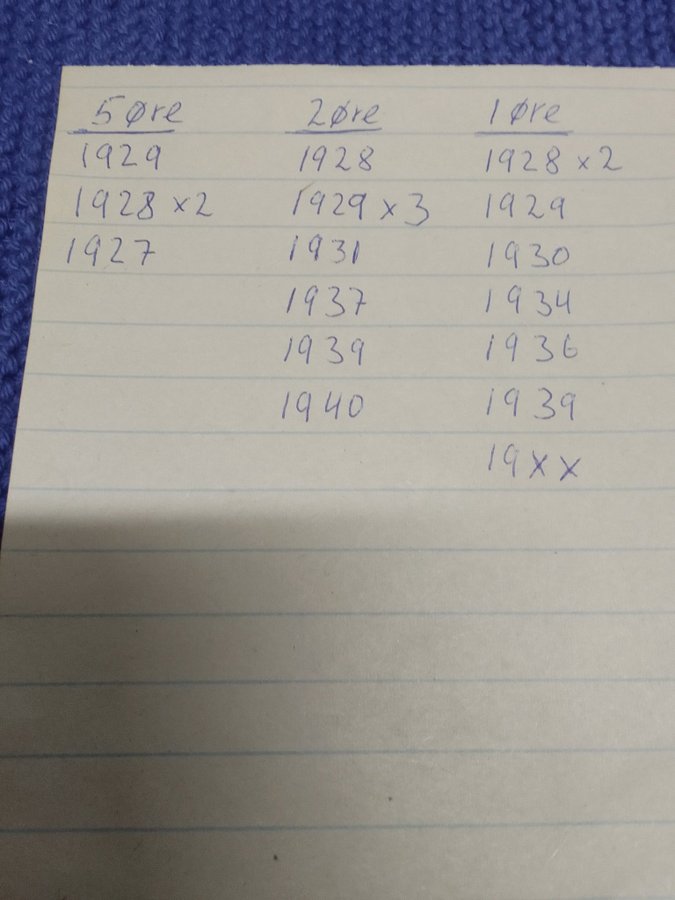 5 øre 2 øre 1 øre
1929 1928 1928 x 2
1928 x 2 1929 x 3 1929
1927 1931 1930
1937 1934
1939 1936
1940 1939
19xx